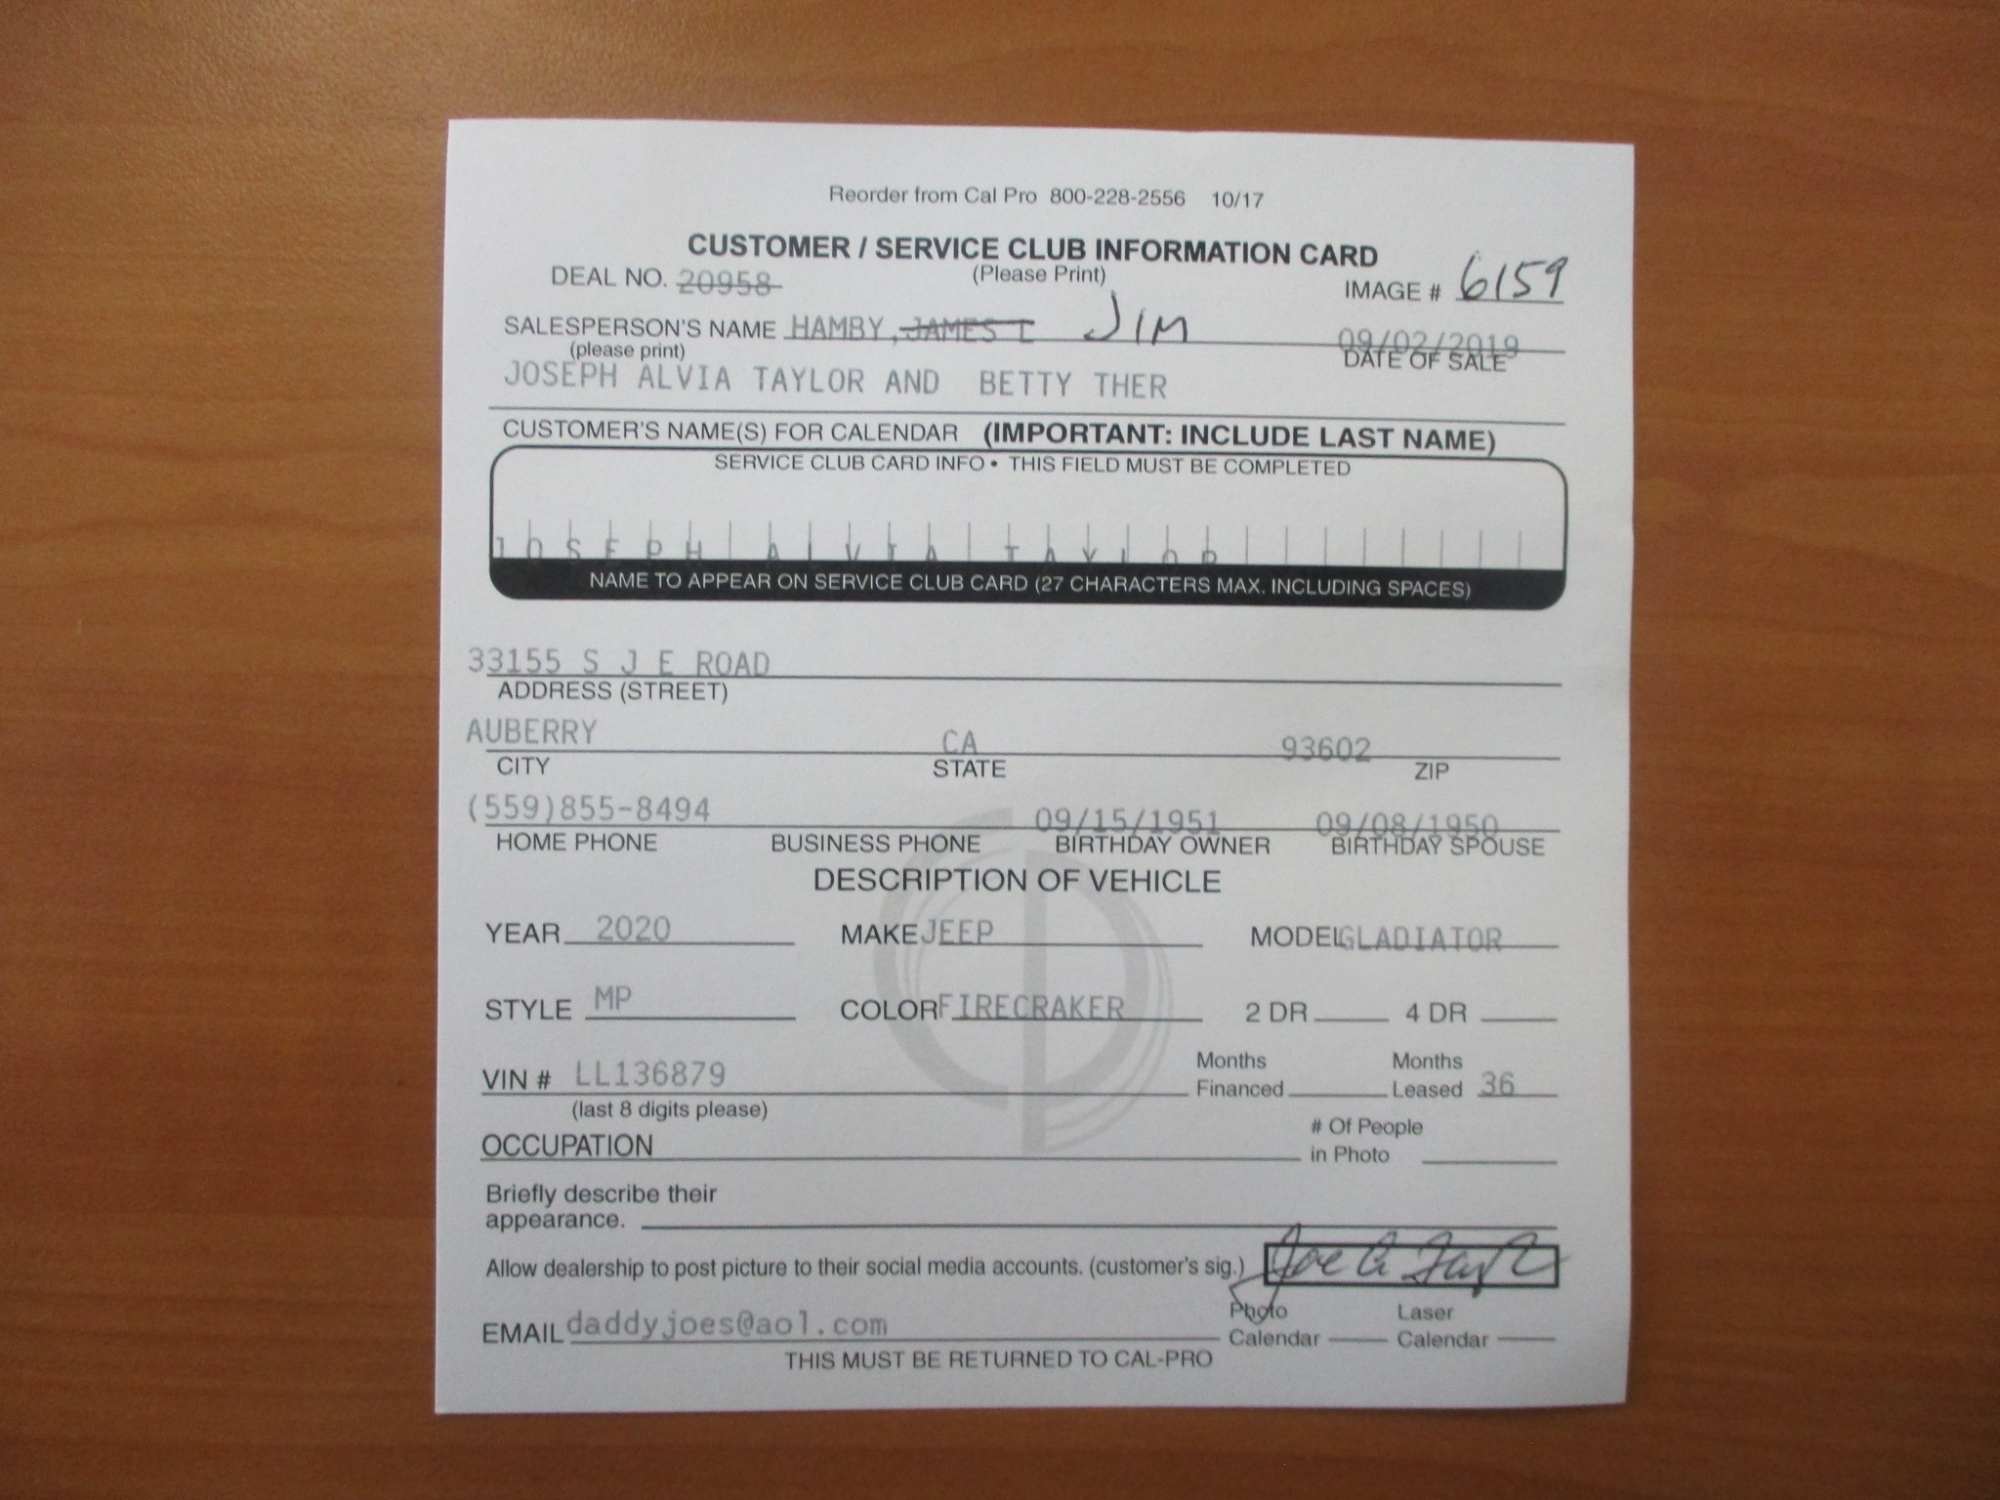 Reorder from Cal Pro 800-228-2556 10/17
CUSTOMER / SERVICE CLUB INFORMATION CARD
DEAL NO. 20958 (Please Print) IMAGE # 6159
SALESPERSON'S NAME HAMBY, JAMES L JIM 09/02/2019
(please print) DATE OF SALE
JOSEPH ALVIA TAYLOR AND BETTY THER
CUSTOMER'S NAME(S) FOR CALENDAR (IMPORTANT: INCLUDE LAST NAME)
SERVICE CLUB CARD INFO • THIS FIELD MUST BE COMPLETED
JOSEPH ALVIA TAYLOR
NAME TO APPEAR ON SERVICE CLUB CARD (27 CHARACTERS MAX. INCLUDING SPACES)
33155 S J E ROAD
ADDRESS (STREET)
AUBERRY CA 93602
CITY STATE ZIP
(559)855-8494 09/15/1951 09/08/1950
HOME PHONE BUSINESS PHONE BIRTHDAY OWNER BIRTHDAY SPOUSE
DESCRIPTION OF VEHICLE
YEAR 2020 MAKE JEEP MODEL GLADIATOR
STYLE MP COLOR FIRECRAKER 2 DR 4 DR
VIN # LL136879 Months Financed Months Leased 36
(last 8 digits please)
OCCUPATION # Of People in Photo
Briefly describe their
appearance.
Allow dealership to post picture to their social media accounts. (customer's sig.) Joe A Taylor
EMAIL daddyjoes@aol.com Photo Calendar Laser Calendar
THIS MUST BE RETURNED TO CAL-PRO